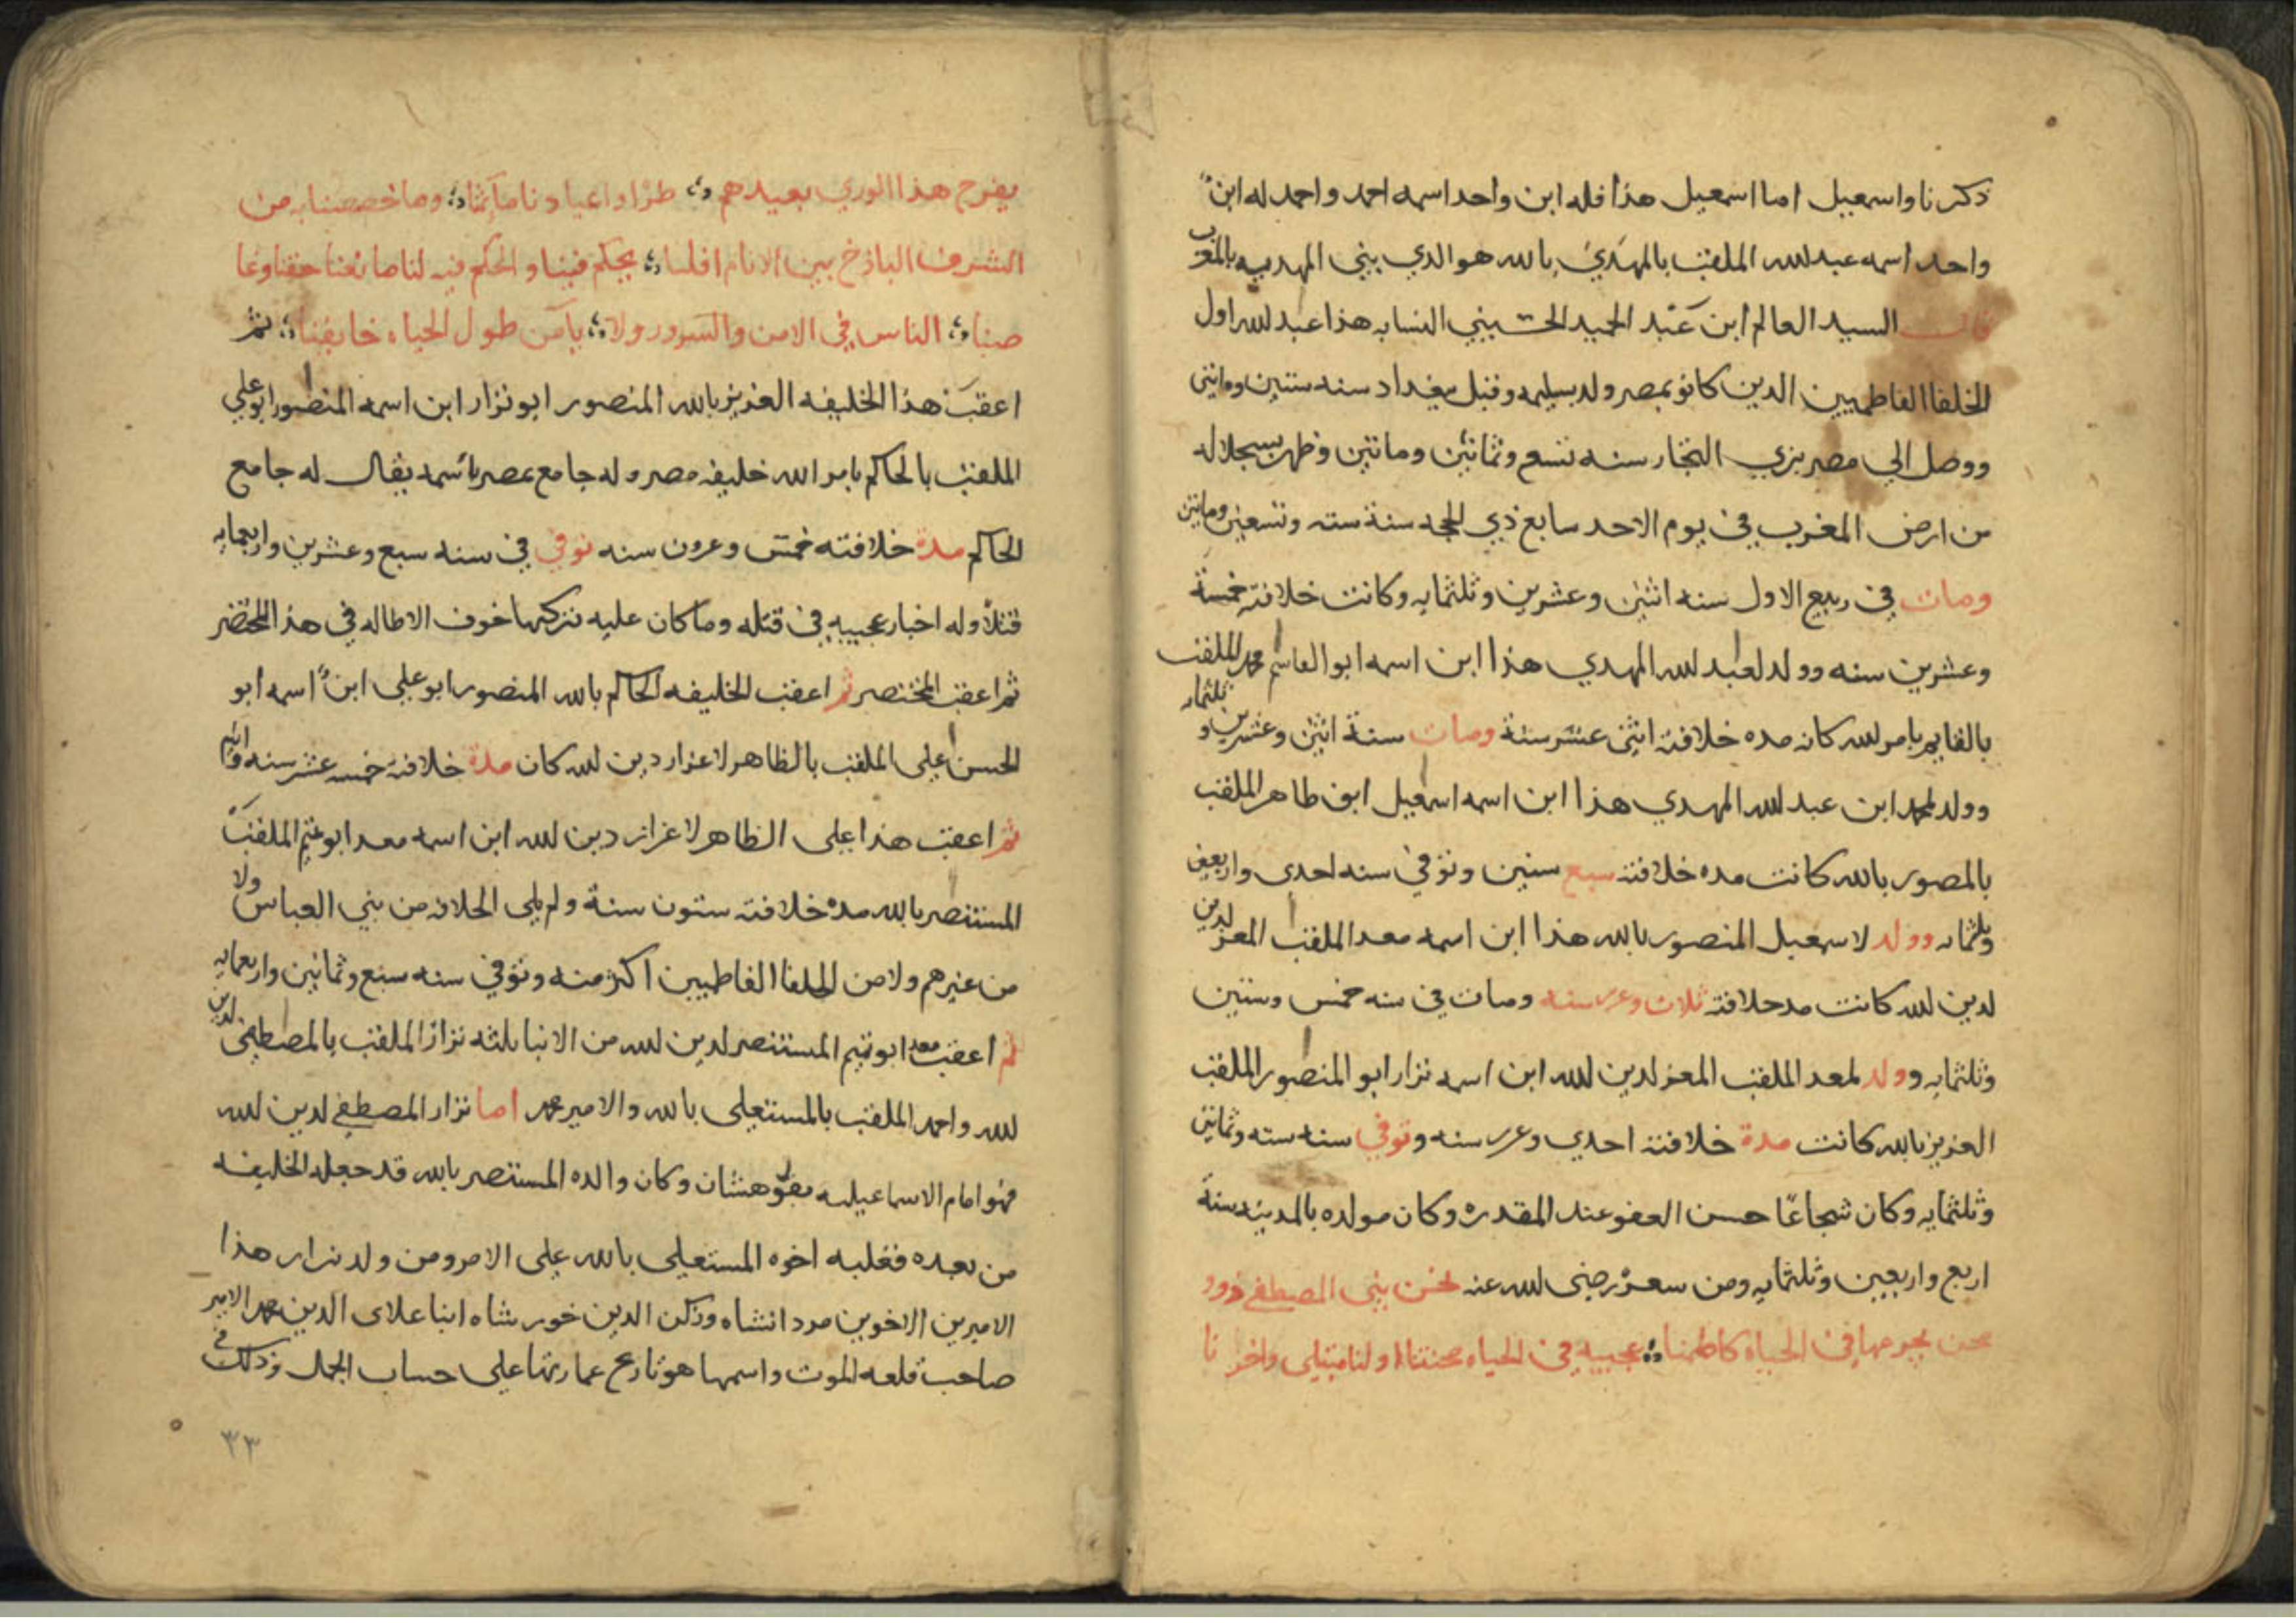 ذكرنا واسمعيل اما اسمعيل هذا فله ابن واحد اسمه احمد واحمد له ابنٌ
واحد اسمه عبدلله الملقب بالمهدي بالله هو الدي بني المهديه بالمغرب
قال السيد العالم ابن عبد الحميد الحسيني النسابه هذا عبدلله اول
الخلفا الفاطميين الدين كانو بمصر ولد بسليمه وقيل ببغداد سنه ستين وماتين
ووصل الي مصر بزي التجار سنه تسع وثمانين وماتين وظهر بسجلاله
من ارض المغرب في يوم الاحد سابع ذي الحجه سنة سته وتسعين وماتين
ومات في ربيع الاول سنه اثنين وعشرين وثلثمايه وكانت خلافته خمسة
وعشرين سنه وولد لعبد لله المهدي هذا ابن اسمه ابو القاسم محمد الملقب
بالقايم بامر لله كانه مده خلافته اثني عشر سنة ومات سنة اثنين وعشرين و ثلثمايه
وولد لمحمد ابن عبد لله المهدي هذا ابن اسمه اسمعيل ابو طاهر الملقب
بالمصور بالله كانت مده خلافته سبع سنين وتوفي سنه احدى واربعين
وثلثمايه وولد لاسمعيل المنصور بالله هذا ابن اسمه معد الملقب المعز لدين
لدين لله كانت مد خلافته ثلاث وعرىسنه ومات في سنه خمس وستين
وثلثمايه وولد لمعد الملقب المعز لدين لله ابن اسمه نزار ابو المنصور الملقب
العزيز بالله كانت مدة خلافته احدي وعرىسنه وتوفي سنه سته وثمانين
وثلثمايه وكان شجاعًا حسن العفو عند المقدره وكان مولده بالمدينه سنة
اربع واربعين وثلثمايه ومن سعره رضى لله عنه نحن بني المصطفي ذوو
محن يجرعها في الحياه كاظمنا عجيبه في الحياه محنتنا اولنا مبتلى واخرنا
يفرح هذا الوري بعيدهم طرا واعيادنا مآتمنا وما خصصنا به من
الشرف الباذخ بين الانام افلسا يحكم فينا والحكم فيه لنا مانعنا حقنا وغا
صبنا الناس في الامن والسرور ولا يآمن طول الحياه خايفنا ثم
اعقب هذا الخليفه العزيز بالله المنصور ابو نزار ابن اسمه المنصور ابو علي
الملقب بالحاكم بامر الله خليفه مصر وله جامع بمصر باسمه يقال له جامع
الحاكم مدة خلافته خمس وعرون سنه توفي في سنه سبع وعشرين واربعمايه
قتلاً وله اخبار عجيبه في قتله وماكان عليه نتركها خوف الاطاله في هذا المختصر
ثم اعقب المختصر ثم اعقب الخليفه الحاكم بالله المنصور ابو علي ابنٌ اسمه ابو
الحسن علي الملقب بالظاهر لاعزار دين لله كان مدة خلافته خمسه عشر سنه وايام
ثم اعقب هذا علي الظاهر لاعزاز دين لله ابن اسمه معد ابو تميم الملقب
المستنصر بالله مده خلافته ستون سنة ولم يلي الخلافه من بني العباس ولا
من غيرهم ولا من الخلفا الفاطميين اكثر منه وتوفي سنه سبع وثمانين واربعمايه
ثم اعقب معد ابو تميم المستنصر لدين لله من الابنا ثلثه نزار الملقب بالمصطفى لدين
لله واحمد الملقب بالمستعلي بالله والامير محمد اما نزار المصطفي لدين لله
فهو امام الاسماعيليه بقوهستان وكان والده المستنصر بالله قد جعله الخليفه
من بعده فغلبه اخوه المستعلي بالله علي الامر ومن ولد نزار هذا
الاميرين الاخوين مردانشاه وركن الدين خورشاه ابنا علاى الدين محمد الامير
صاحب قلعه الموت واسمها هو تاريخ عمارتها على حساب الجمل وذلك في
٣٣